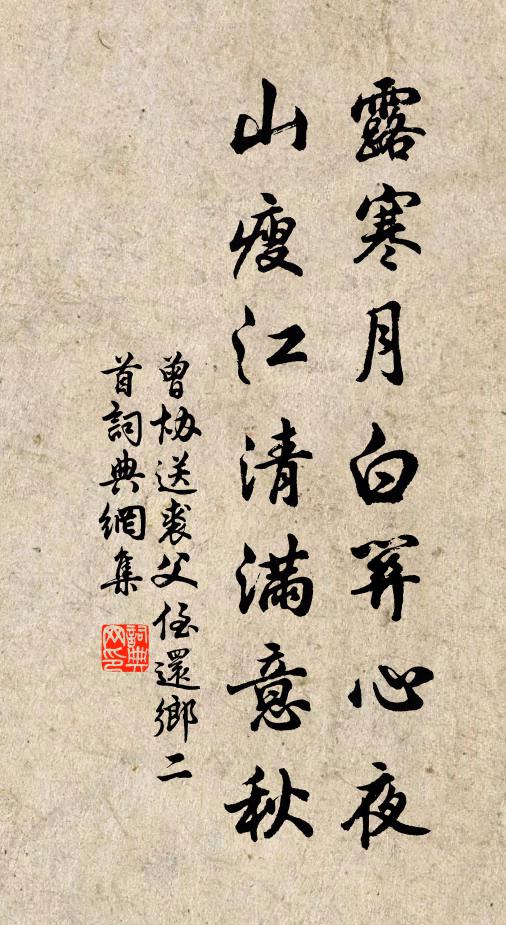 露寒月白關心夜
山瘦江清滿意秋
曾協送裘父侄還鄉二
首詞典網集
詞典
网印